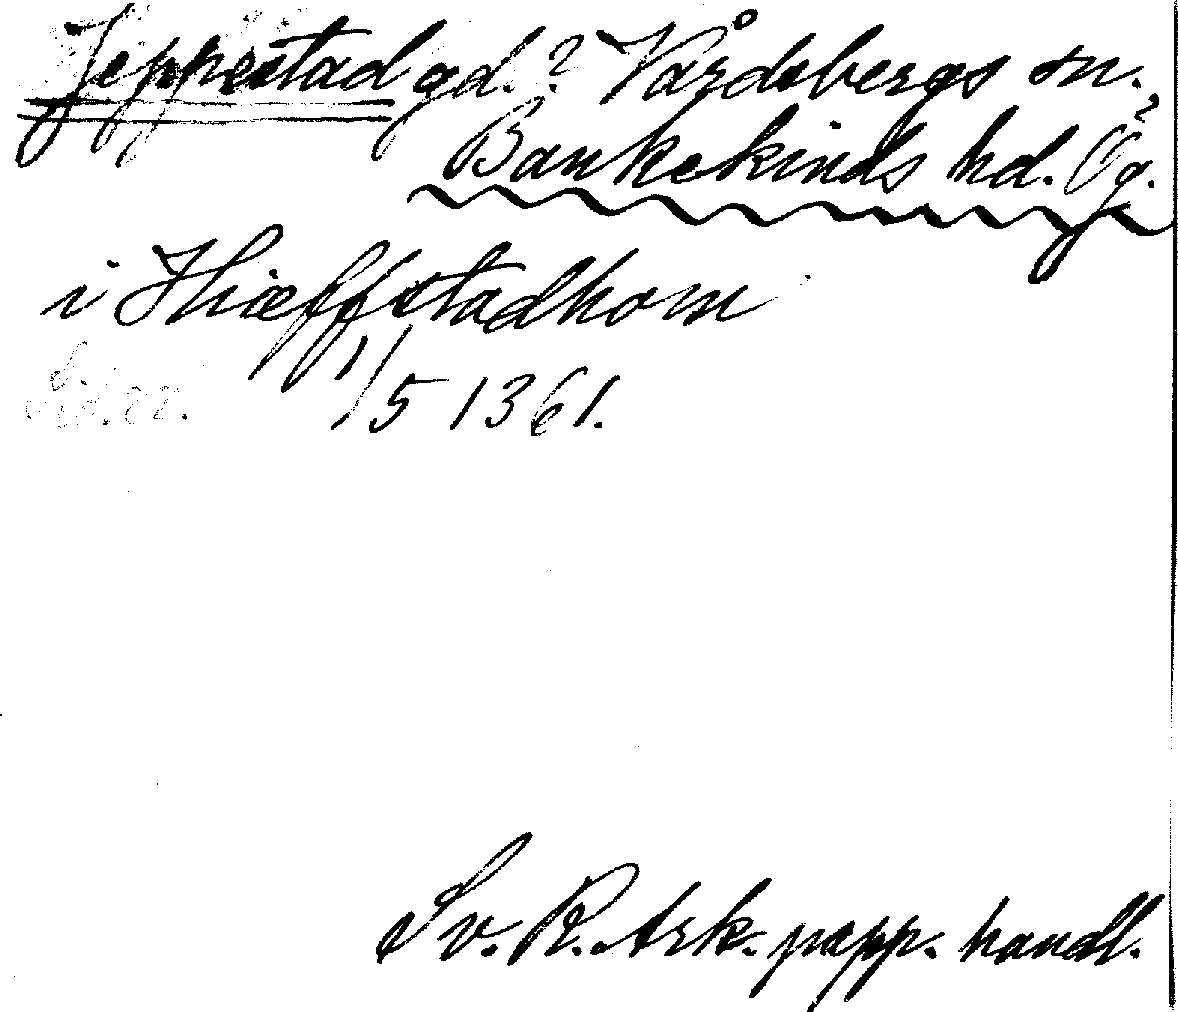 Jeppestad gd.? Vårdsbergs sn.
Bankekinds hd. Ög.?
i Hiæffstadhom
1/5 1361.
Sv. R. Ark. papp. handl.